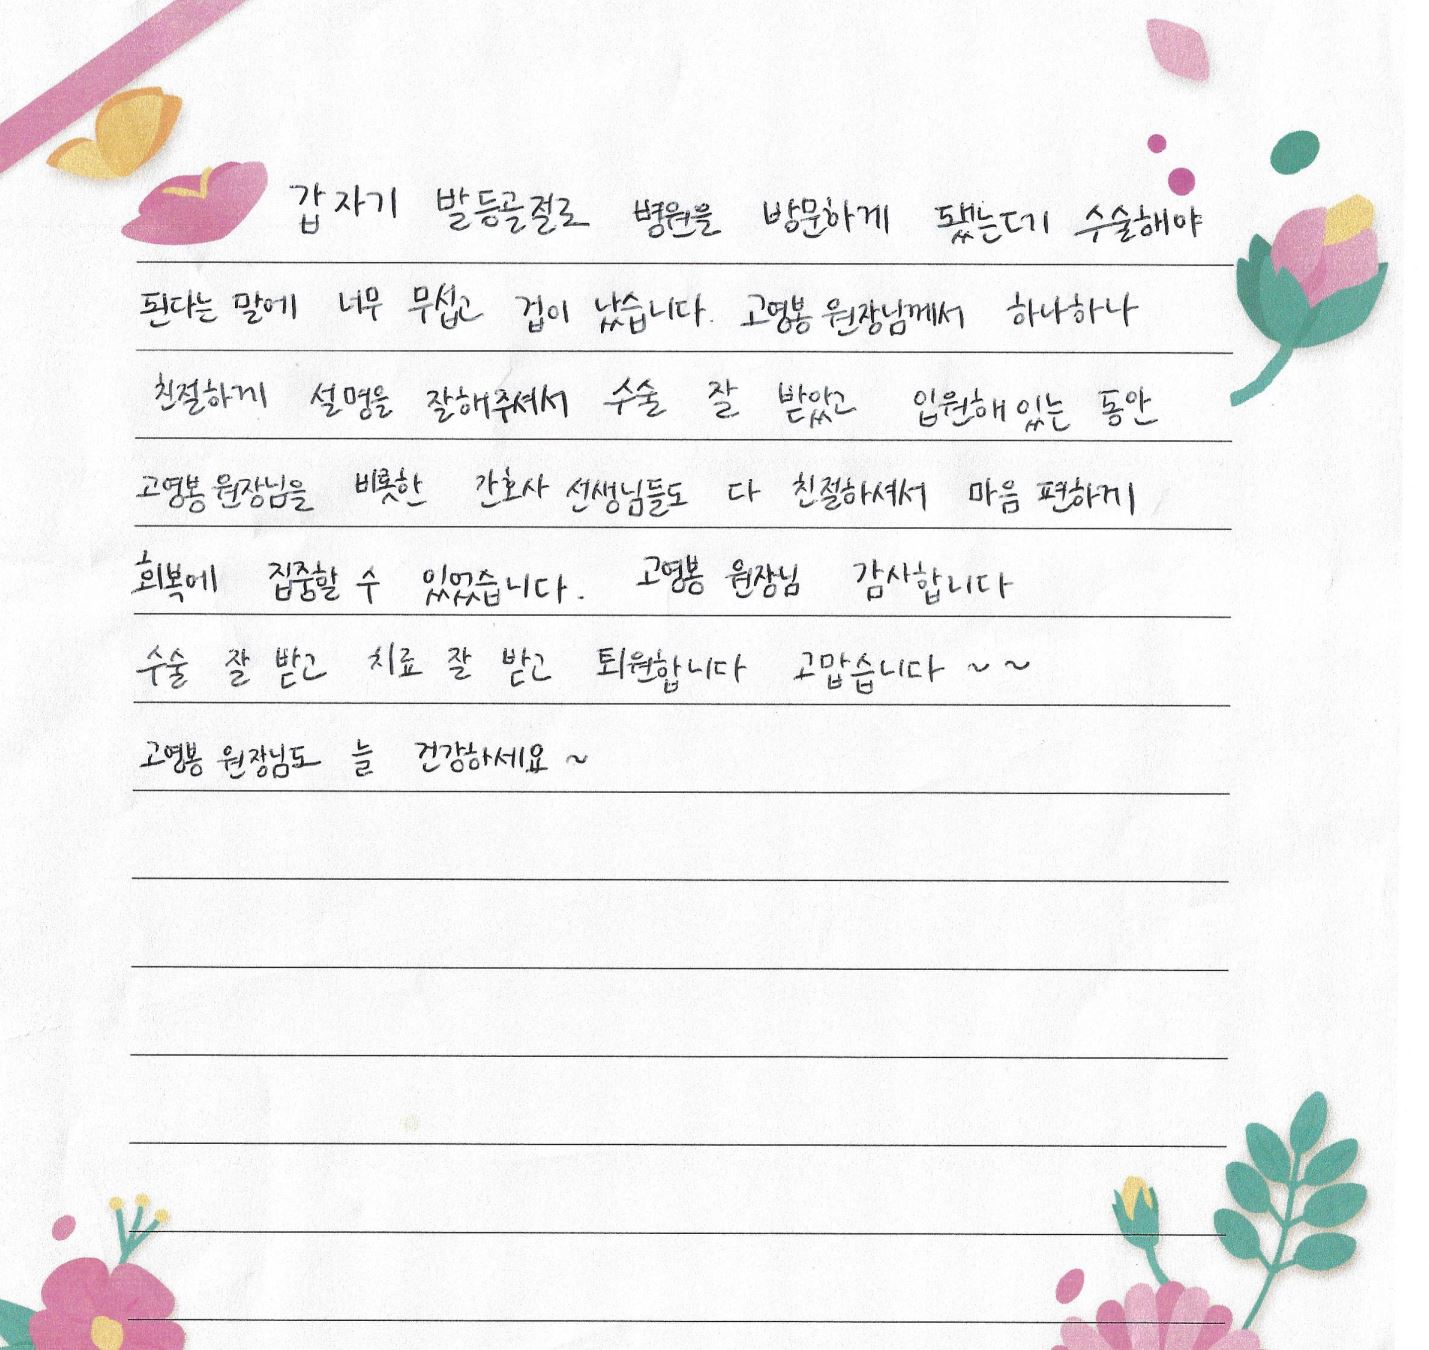 갑자기 발등골절로 병원을 방문하게 됐는데 수술해야
된다는 말에 너무 무섭고 겁이 났습니다. 고영봉 원장님께서 하나하나
친절하게 설명을 잘해주셔서 수술 잘 받았고 입원해 있는 동안
고영봉 원장님을 비롯한 간호사 선생님들도 다 친절하셔서 마음 편하게
회복에 집중할 수 있었습니다. 고영봉 원장님 감사합니다
수술 잘 받고 치료 잘 받고 퇴원합니다 고맙습니다 ~ ~
고영봉 원장님도 늘 건강하세요 ~